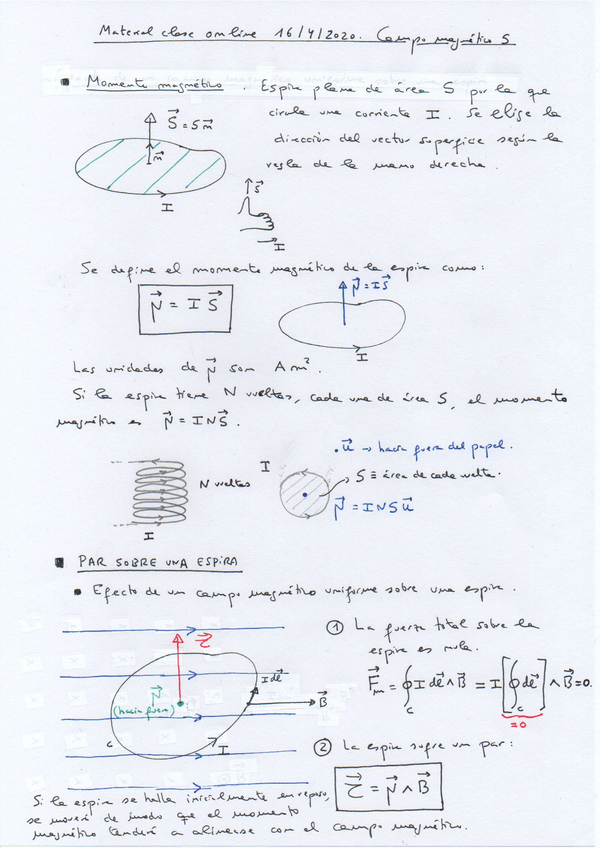 Material clase on line 16/4/2020. Campo magnético 5
▪ Momento magnético. Espira plana de área S por la que
circula una corriente I. Se elige la
dirección del vector superficie según la
regla de la mano derecha.
S⃗ = S n⃗
n⃗
I
S⃗
I
Se define el momento magnético de la espira como:
μ⃗ = I S⃗
μ⃗ = I S⃗
I
Las unidades de μ⃗ son A m².
Si la espira tiene N vueltas, cada una de área S, el momento
magnético es μ⃗ = I N S⃗.
• u⃗ → hacia fuera del papel.
I
S ≡ área de cada vuelta.
N vueltas
μ⃗ = I N S u⃗
I
▪ PAR SOBRE UNA ESPIRA
• Efecto de un campo magnético uniforme sobre una espira.
① La fuerza total sobre la
espira es nula.
τ⃗
I dl⃗
μ⃗
(hacia fuera)
B⃗
C
I
F⃗m = ∮c I dl⃗ ∧ B⃗ = I [∮c dl⃗] ∧ B⃗ = 0.
= 0
② La espira sufre un par:
τ⃗ = μ⃗ ∧ B⃗
Si la espira se halla inicialmente en reposo,
se moverá de modo que el momento
magnético tenderá a alinearse con el campo magnético.